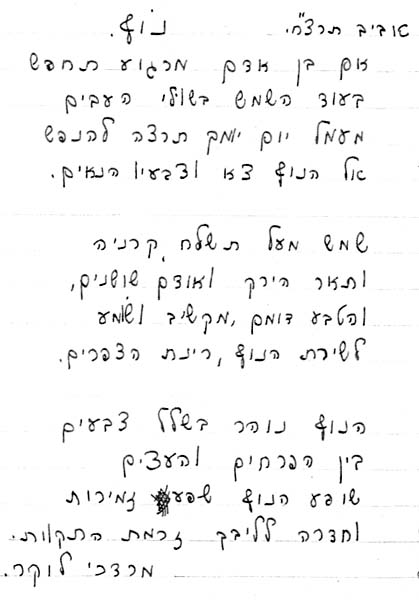 אוביב תרצ"ח. נוף.
אם בן אדם מרגוע תחפש
בעוד השמש בשולי העבים
מעמל יום יומך תרצה להנפש
אל הנוף צא וצבעיו הנאים.
שמש מעל תשלח קרניה
ותאר הירק ואודם שושנים,
והטבע דומם, מקשיב ושומע
לשירת הנוף, רינת הצפרים.
הנוף נוהר בשלל צבעים
בין הפרחים והעצים
שופע הנוף שפע זמירות
וחדרה לליבך זרמת התקוות.
מרדכי לוקר.